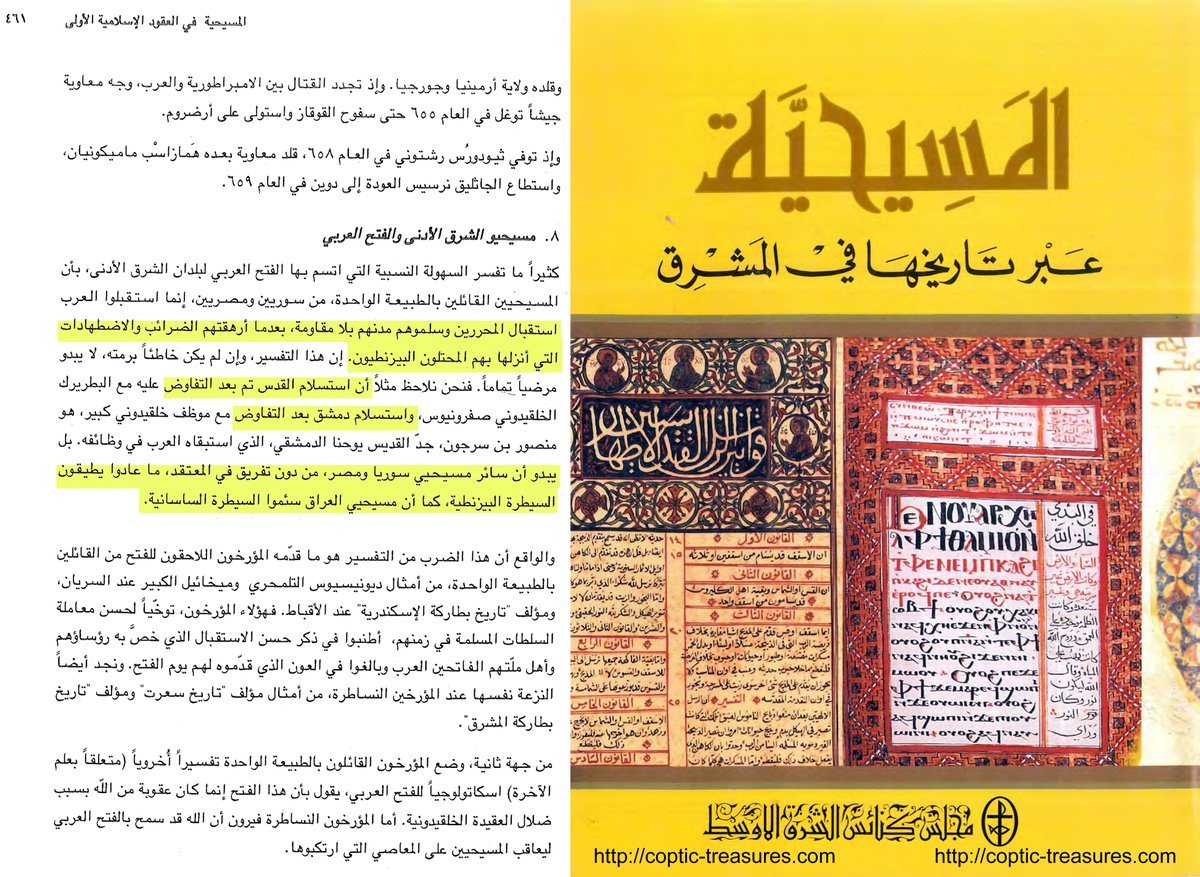 المسيحية في العقود الإسلامية الأولى ٤٦١
وقلده ولاية أرمينيا وجورجيا. وإذ تجدد القتال بين الامبراطورية والعرب، وجه معاوية
جيشاً توغل في العام ٦٥٥ حتى سفوح القوقاز واستولى على أرضروم.
وإذ توفي ثيودورُس رشتوني في العام ٦٥٨، قلد معاوية بعده هَمازاسْب ماميكونيان،
واستطاع الجاثليق نرسيس العودة إلى دوين في العام ٦٥٩.
٨. مسيحيو الشرق الأدنى والفتح العربي
كثيراً ما تفسر السهولة النسبية التي اتسم بها الفتح العربي لبلدان الشرق الأدنى، بأن
المسيحيين القائلين بالطبيعة الواحدة، من سوريين ومصريين، إنما استقبلوا العرب
استقبال المحررين وسلموهم مدنهم بلا مقاومة، بعدما أرهقتهم الضرائب والاضطهادات
التي أنزلها بهم المحتلون البيزنطيون. إن هذا التفسير، وإن لم يكن خاطئاً برمته، لا يبدو
مرضياً تماماً. فنحن نلاحظ مثلاً أن استسلام القدس تم بعد التفاوض عليه مع البطريرك
الخلقيدوني صفرونيوس، واستسلام دمشق بعد التفاوض مع موظف خلقيدوني كبير، هو
منصور بن سرجون، جدّ القديس يوحنا الدمشقي، الذي استبقاه العرب في وظائفه. بل
يبدو أن سائر مسيحيي سوريا ومصر، من دون تفريق في المعتقد، ما عادوا يطيقون
السيطرة البيزنطية، كما أن مسيحيي العراق سئموا السيطرة الساسانية.
والواقع أن هذا الضرب من التفسير هو ما قدّمه المؤرخون اللاحقون للفتح من القائلين
بالطبيعة الواحدة، من أمثال ديونيسيوس التلمحري وميخائيل الكبير عند السريان،
ومؤلف "تاريخ بطاركة الإسكندرية" عند الأقباط. فهؤلاء المؤرخون، توخّياً لحسن معاملة
السلطات المسلمة في زمنهم، أطنبوا في ذكر حسن الاستقبال الذي خصَّ به رؤساؤهم
وأهل ملّتهم الفاتحين العرب وبالغوا في العون الذي قدّموه لهم يوم الفتح. ونجد أيضاً
النزعة نفسها عند المؤرخين النساطرة، من أمثال مؤلف "تاريخ سعرت" ومؤلف "تاريخ
بطاركة المشرق".
من جهة ثانية، وضع المؤرخون القائلون بالطبيعة الواحدة تفسيراً أُخروياً (متعلقاً بعلم
الآخرة) اسكاتولوجياً للفتح العربي، يقول بأن هذا الفتح إنما كان عقوبة من الله بسبب
ضلال العقيدة الخلقيدونية. أما المؤرخون النساطرة فيرون أن الله قد سمح بالفتح العربي
ليعاقب المسيحيين على المعاصي التي ارتكبوها.
المَسِيحيَّة
عَبْر تاريخهَا في المَشرق
القانون الأول
القانون الثاني
القانون الثالث
القانون الرابع
القانون الخامس
القانون السادس
مجلس كنائس الشرق الأوسط
http://coptic-treasures.com
http://coptic-treasures.com